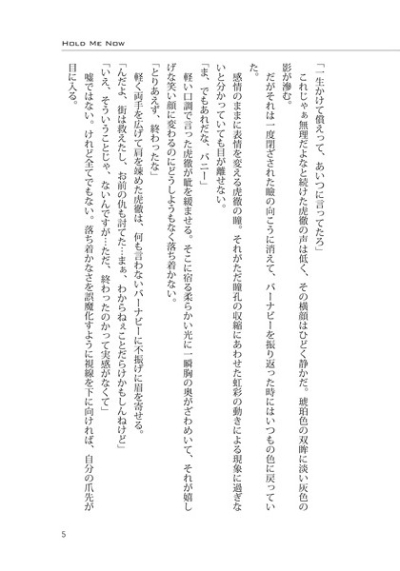 HOLD ME NOW
「一生かけて償えって、あいつに言ってたろ」
これじゃぁ無理だよなと続けた虎徹の声は低く、その横顔はひどく静かだ。琥珀色の双眸に淡い灰色の
影が滲む。
だがそれは一度閉ざされた瞼の向こうに消えて、バーナビーを振り返った時にはいつもの色に戻ってい
た。
感情のままに表情を変える虎徹の瞳。それがただ瞳孔の収縮にあわせた虹彩の動きによる現象に過ぎな
いと分かっていても目が離せない。
「ま、でもあれだな、バニー」
軽い口調で言った虎徹が眦を緩ませる。そこに宿る柔らかい光に一瞬胸の奥がざわめいて、それが嬉し
げな笑い顔に変わるのにどうしようもなく落ち着かない。
「とりあえず、終わったな」
軽く両手を広げて肩を竦めた虎徹は、何も言わないバーナビーに不振げに眉を寄せる。
「んだよ、街は救えたし、お前の仇も討てた…まぁ、わからねぇことだらけかもしんねけど」
「いえ、そういうことじゃ、ないんですが…ただ、終わったのかって実感がなくて」
嘘ではない。けれど全てでもない。落ち着かなさを誤魔化すように視線を下に向ければ、自分の爪先が
目に入る。
5